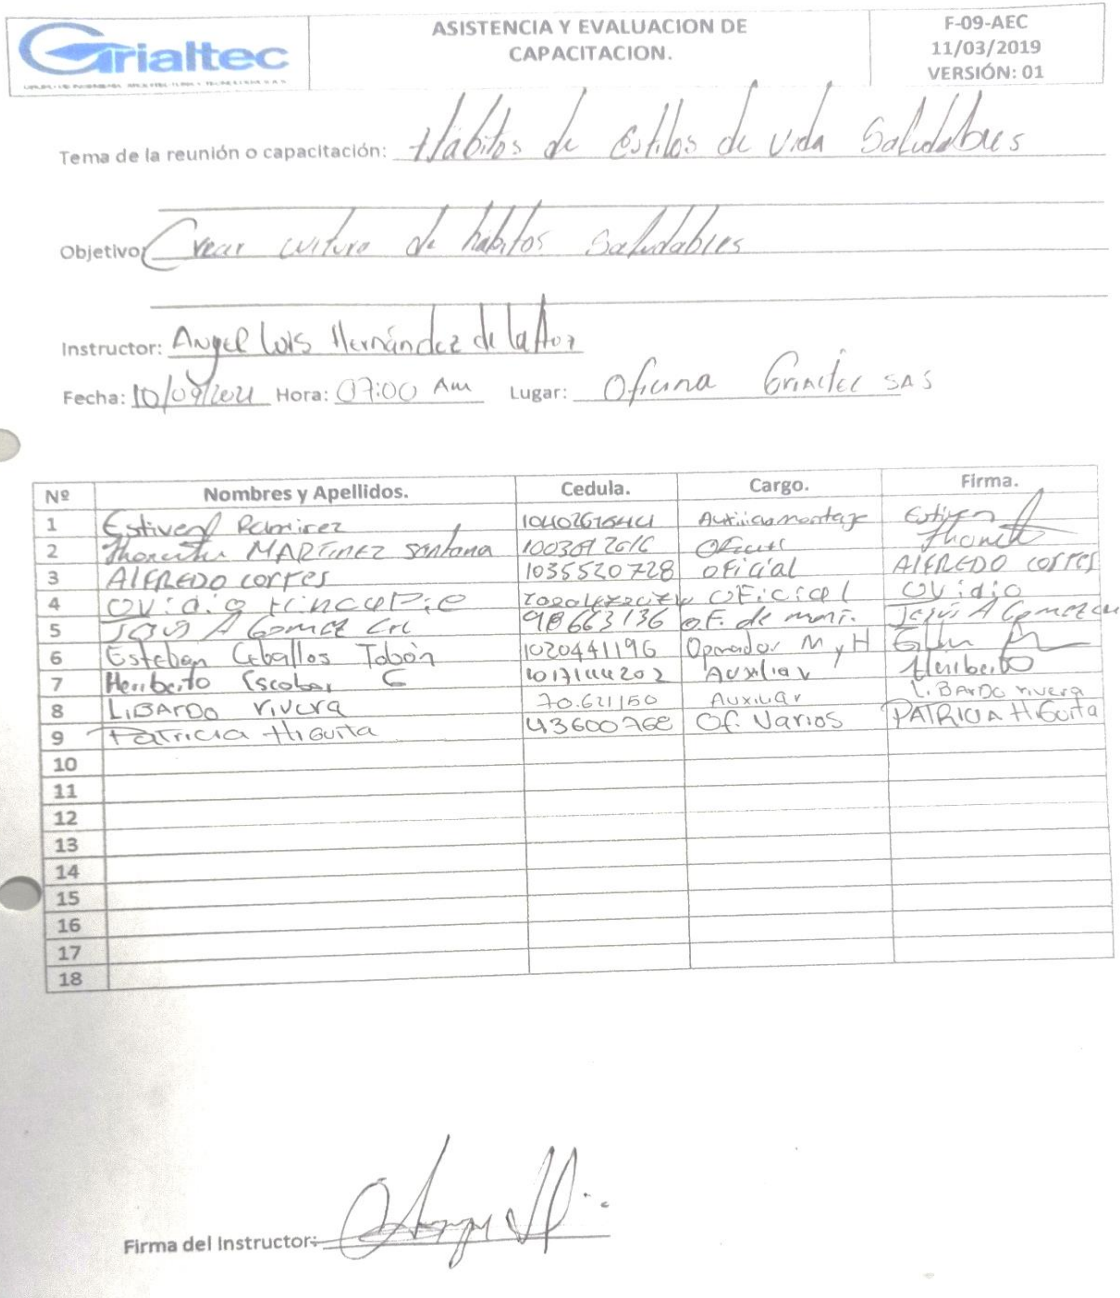 Grialtec
ASISTENCIA Y EVALUACION DE
CAPACITACION.
F-09-AEC
11/03/2019
VERSIÓN: 01
Tema de la reunión o capacitación: Hábitos de Estilos de vida Saludables
Objetivo: Crear cultura de hábitos Saludables
Instructor: Angel Luis Hernández de la Hoz
Fecha: 10/09/2021 Hora: 07:00 Am Lugar: Oficina Grialtec SAS
Nº Nombres y Apellidos. Cedula. Cargo. Firma.
1 Estiven Ramirez Estiven
2 MARTINEZ Santana Oficial
3 AlFREDO corres 1035520728 oFicial AlFREDO corres
4 OVidio Hincapie OFicial OVidio
5 Jesús A Gomez 98663136 of. de mant. Jesús A Gomez
6 Esteban Ceballos Tobón 1020441196 Operador M y H
7 Heriberto Escobar E 1017144202 Auxiliar Heriberto
8 LIBARDO rivera 70.621150 Auxiliar LIBARDO rivera
9 Patricia HiGuita 43600768 Of. Varios PATRICIA HiGuita
10
11
12
13
14
15
16
17
18
Firma del Instructor: